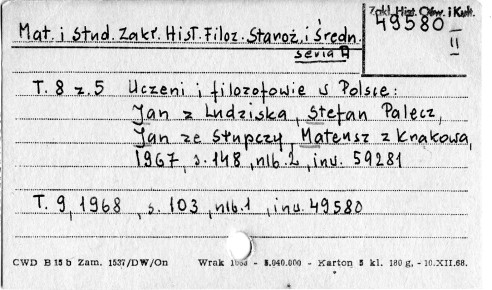 Zakl. Hist. Ośw. i Kult.
49580
II
Mat. i Stud. Zakr. Hist. Filoz. Staroż. i Średn.
seria A
T. 8 z. 5 Uczeni i filozofowie w Polsce:
Jan z Ludziska, Stefan Palecz,
Jan ze Słupczy, Mateusz z Krakowa,
1967, s. 148, nlb. 2, inw. 59281
T. 9, 1968, s. 103, nlb. 1, inw. 49580
CWD B 15 b Zam. 1537/DW/On Wrak - 8.040.000 - Karton 5 kl. 180 g, - 10.XII.68.